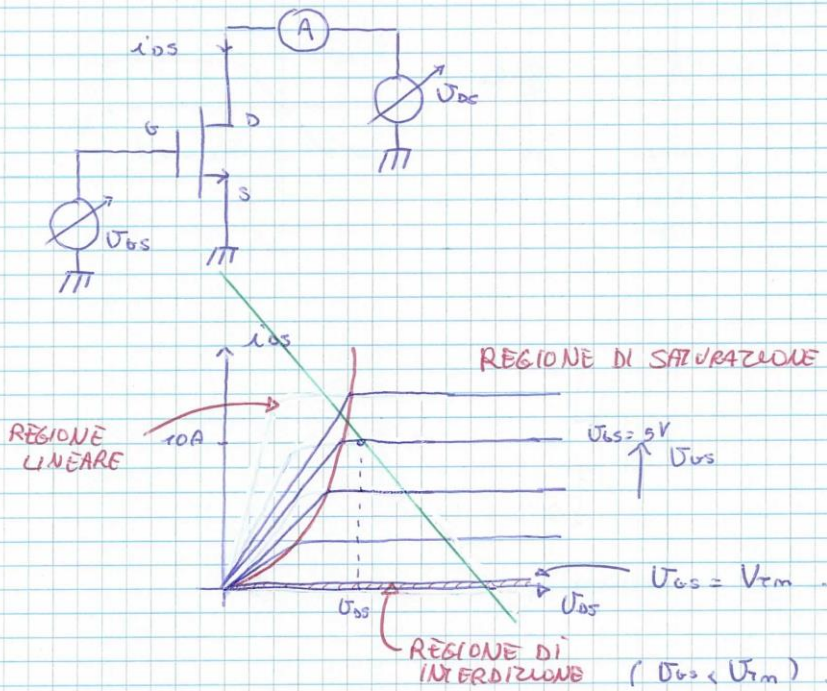 iDS
A
UDS
G
D
S
UGS
iDS
REGIONE DI SATURAZIONE
REGIONE
LINEARE
10A
UGS = 5V
UGS
UGS = VTm
UDS
UDS
REGIONE DI
INTERDIZIONE
(UGS < UTm)